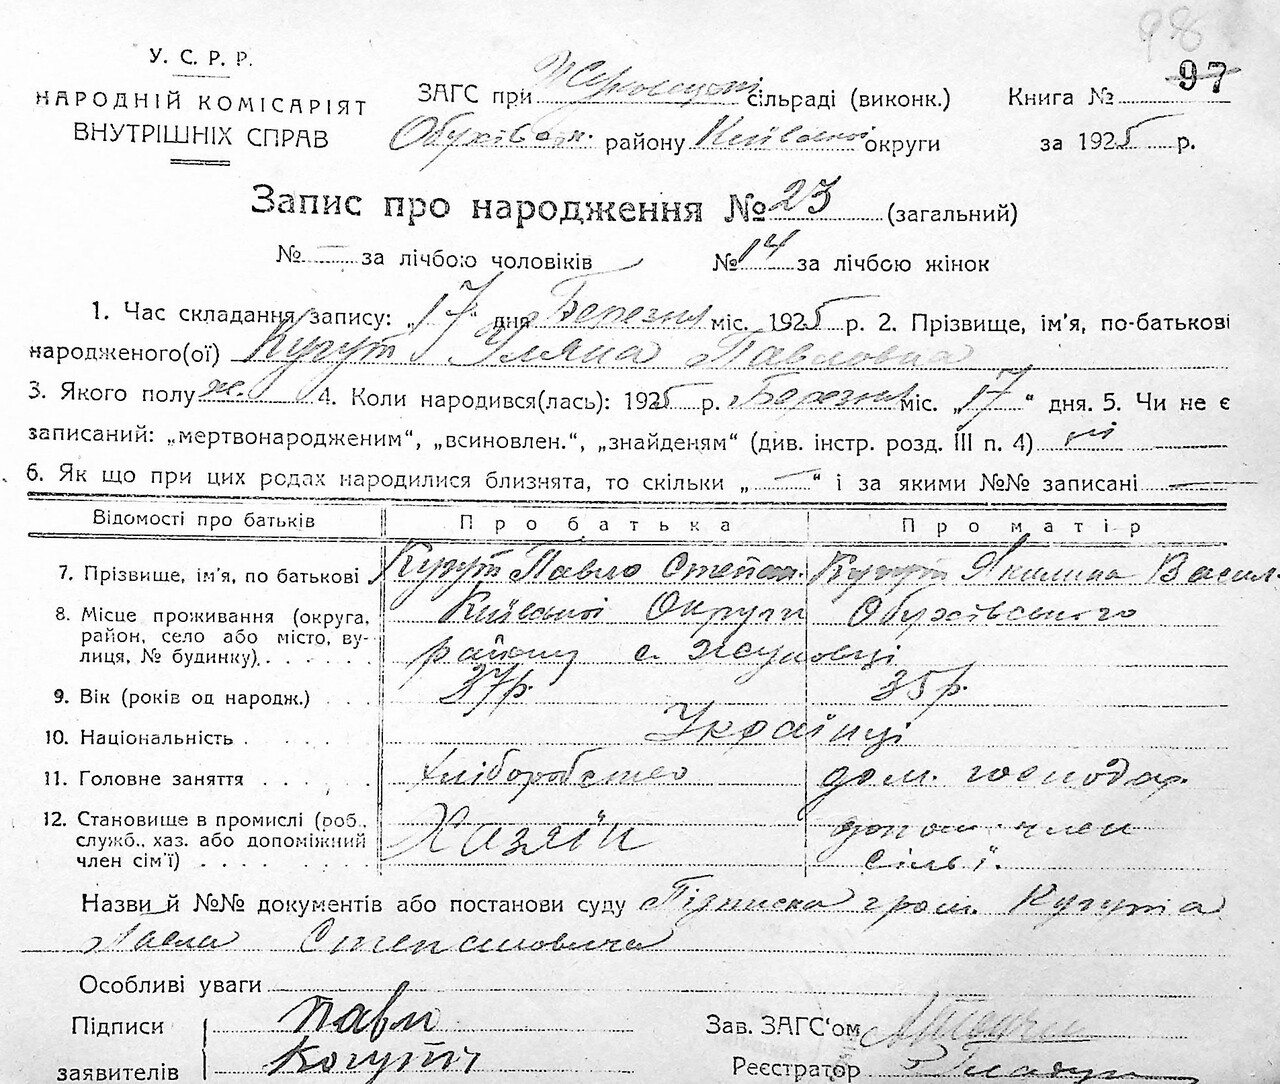 98
У. С. Р. Р.
НАРОДНІЙ КОМІСАРІЯТ
ВНУТРІШНІХ СПРАВ
ЗАГС при сільраді (виконк.) Книга № 97
Обухівськ. району Київської округи за 1925 р.
Запис про народження № 23 (загальний)
№ — за лічбою чоловіків № 14 за лічбою жінок
1. Час складання запису: „17" дня Березня міс. 1925 р. 2. Прізвище, ім'я, по-батькові
народженого(ої) Кугут Уляна Павловна
3. Якого полу ж. 4. Коли народився(лась): 1925 р. Березня міс. „17" дня. 5. Чи не є
записаний: „мертвонародженим", „всиновлен.", „знайденям" (див. інстр. розд. III п. 4) ні
6. Як що при цих родах народилися близнята, то скільки „—" і за якими №№ записані —
Відомості про батьків Про батька Про матір
7. Прізвище, ім'я, по батькові Кугут Павло Степан. Кугут Якилина Васил.
8. Місце проживання (округа, район, село або місто, вулиця, № будинку) Київської Округи Обухівського
району с. Жуковці
9. Вік (років од народж.) 37 р. 35 р.
10. Національність Українці
11. Головне заняття хліборобство дом. господар.
12. Становище в промислі (роб., служб., хаз. або допоміжний член сім'ї) Хазяїн допом. член
сім'ї.
Назви й №№ документів або постанови суду Підписка гром. Кугута
Павла Степановича
Особливі уваги
Підписи Павло Зав. ЗАГС'ом
заявителів Когут Реєстратор